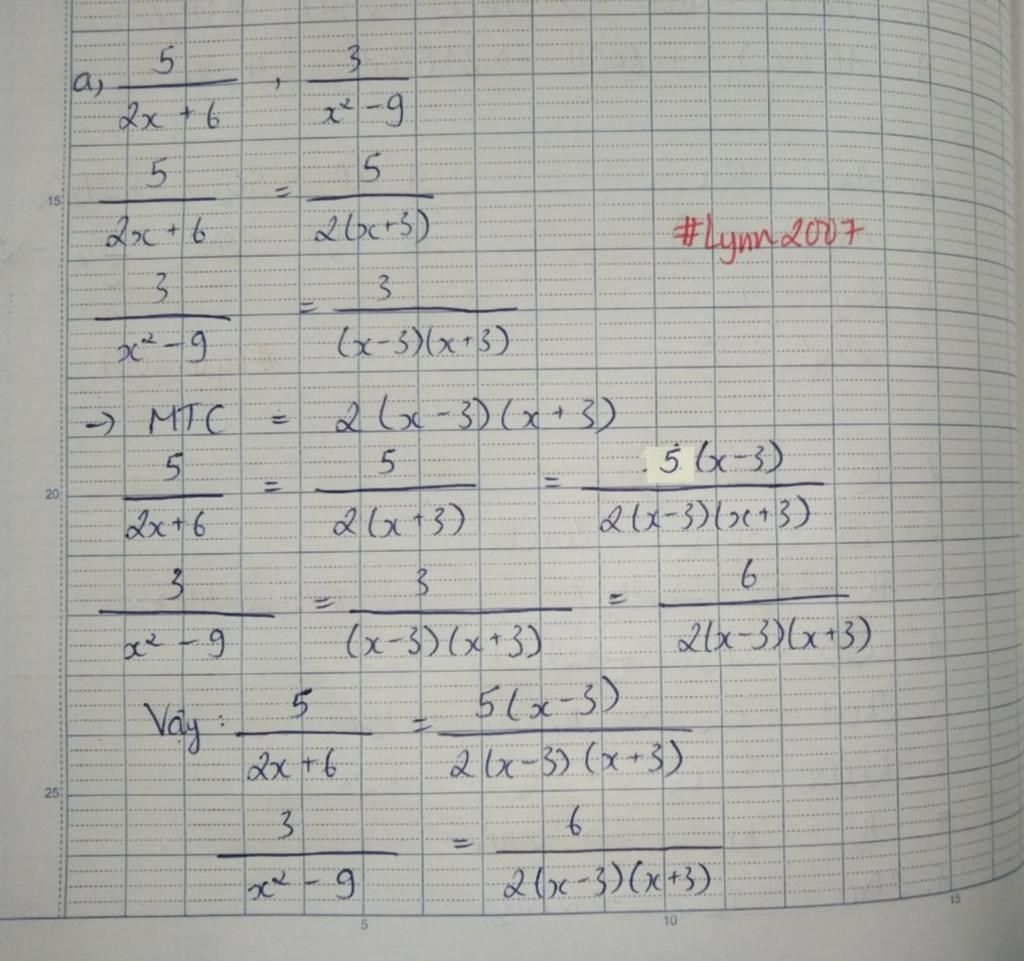 a, 5/(2x + 6) , 3/(x² - 9)
5/(2x + 6) = 5/(2(x+3))
#Lynn2007
3/(x² - 9) = 3/((x-3)(x+3))
→ MTC = 2(x - 3)(x + 3)
5/(2x+6) = 5/(2(x+3)) = 5(x-3)/(2(x-3)(x+3))
3/(x² - 9) = 3/((x-3)(x+3)) = 6/(2(x-3)(x+3))
Vậy : 5/(2x+6) = 5(x-3)/(2(x-3)(x+3))
3/(x² - 9) = 6/(2(x-3)(x+3))
15
20
25
5
10
15